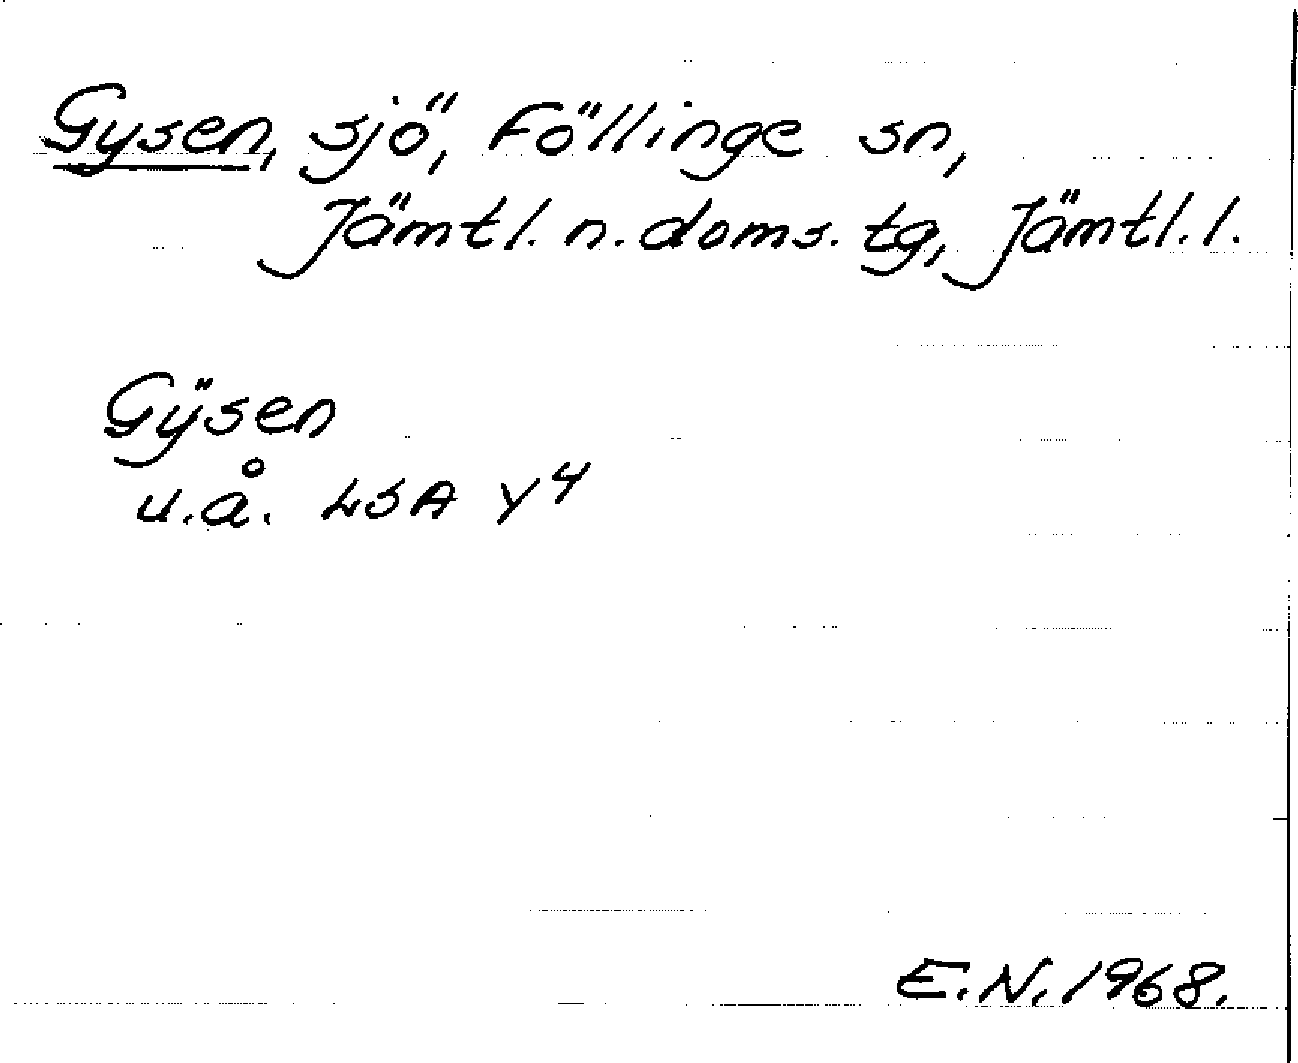 Gysen, sjö, Föllinge sn,
Jämtl. n. doms. tg, Jämtl. l.
Gÿsen
u.å. LSA Y4
E.N. 1968.